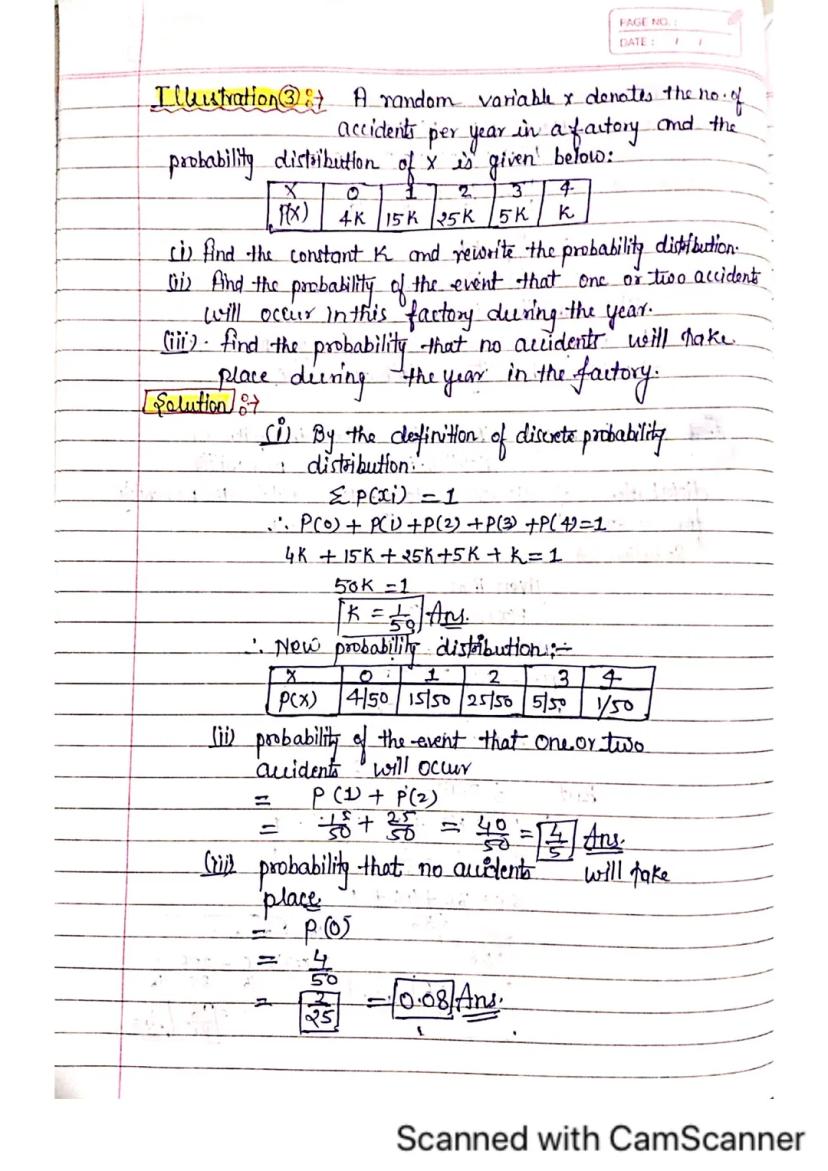 PAGE NO. :
DATE : / /
Illustration ③ :→ A random variable x denotes the no. of
accidents per year in a factory and the
probability distribution of x is given below:
X 0 1 2 3 4
P(X) 4K 15K 25K 5K K
(i) find the constant K and rewrite the probability distribution.
(ii) find the probability of the event that one or two accidents
will occur in this factory during the year.
(iii). find the probability that no accidents will take
place during the year in the factory.
Solution :→
(i) By the definition of discrete probability
distribution:
Σ P(xi) = 1
∴ P(0) + P(1) + P(2) + P(3) + P(4) = 1
4K + 15K + 25K + 5K + K = 1
50K = 1
K = 1/50 Ans.
∴ New probability distribution :-
X 0 1 2 3 4
P(X) 4/50 15/50 25/50 5/50 1/50
(ii) probability of the event that one or two
accidents will occur
= P(1) + P(2)
= 15/50 + 25/50 = 40/50 = 4/5 Ans.
(iii) probability that no accidents will take
place
= P(0)
= 4/50
= 2/25 = 0.08 Ans.
Scanned with CamScanner